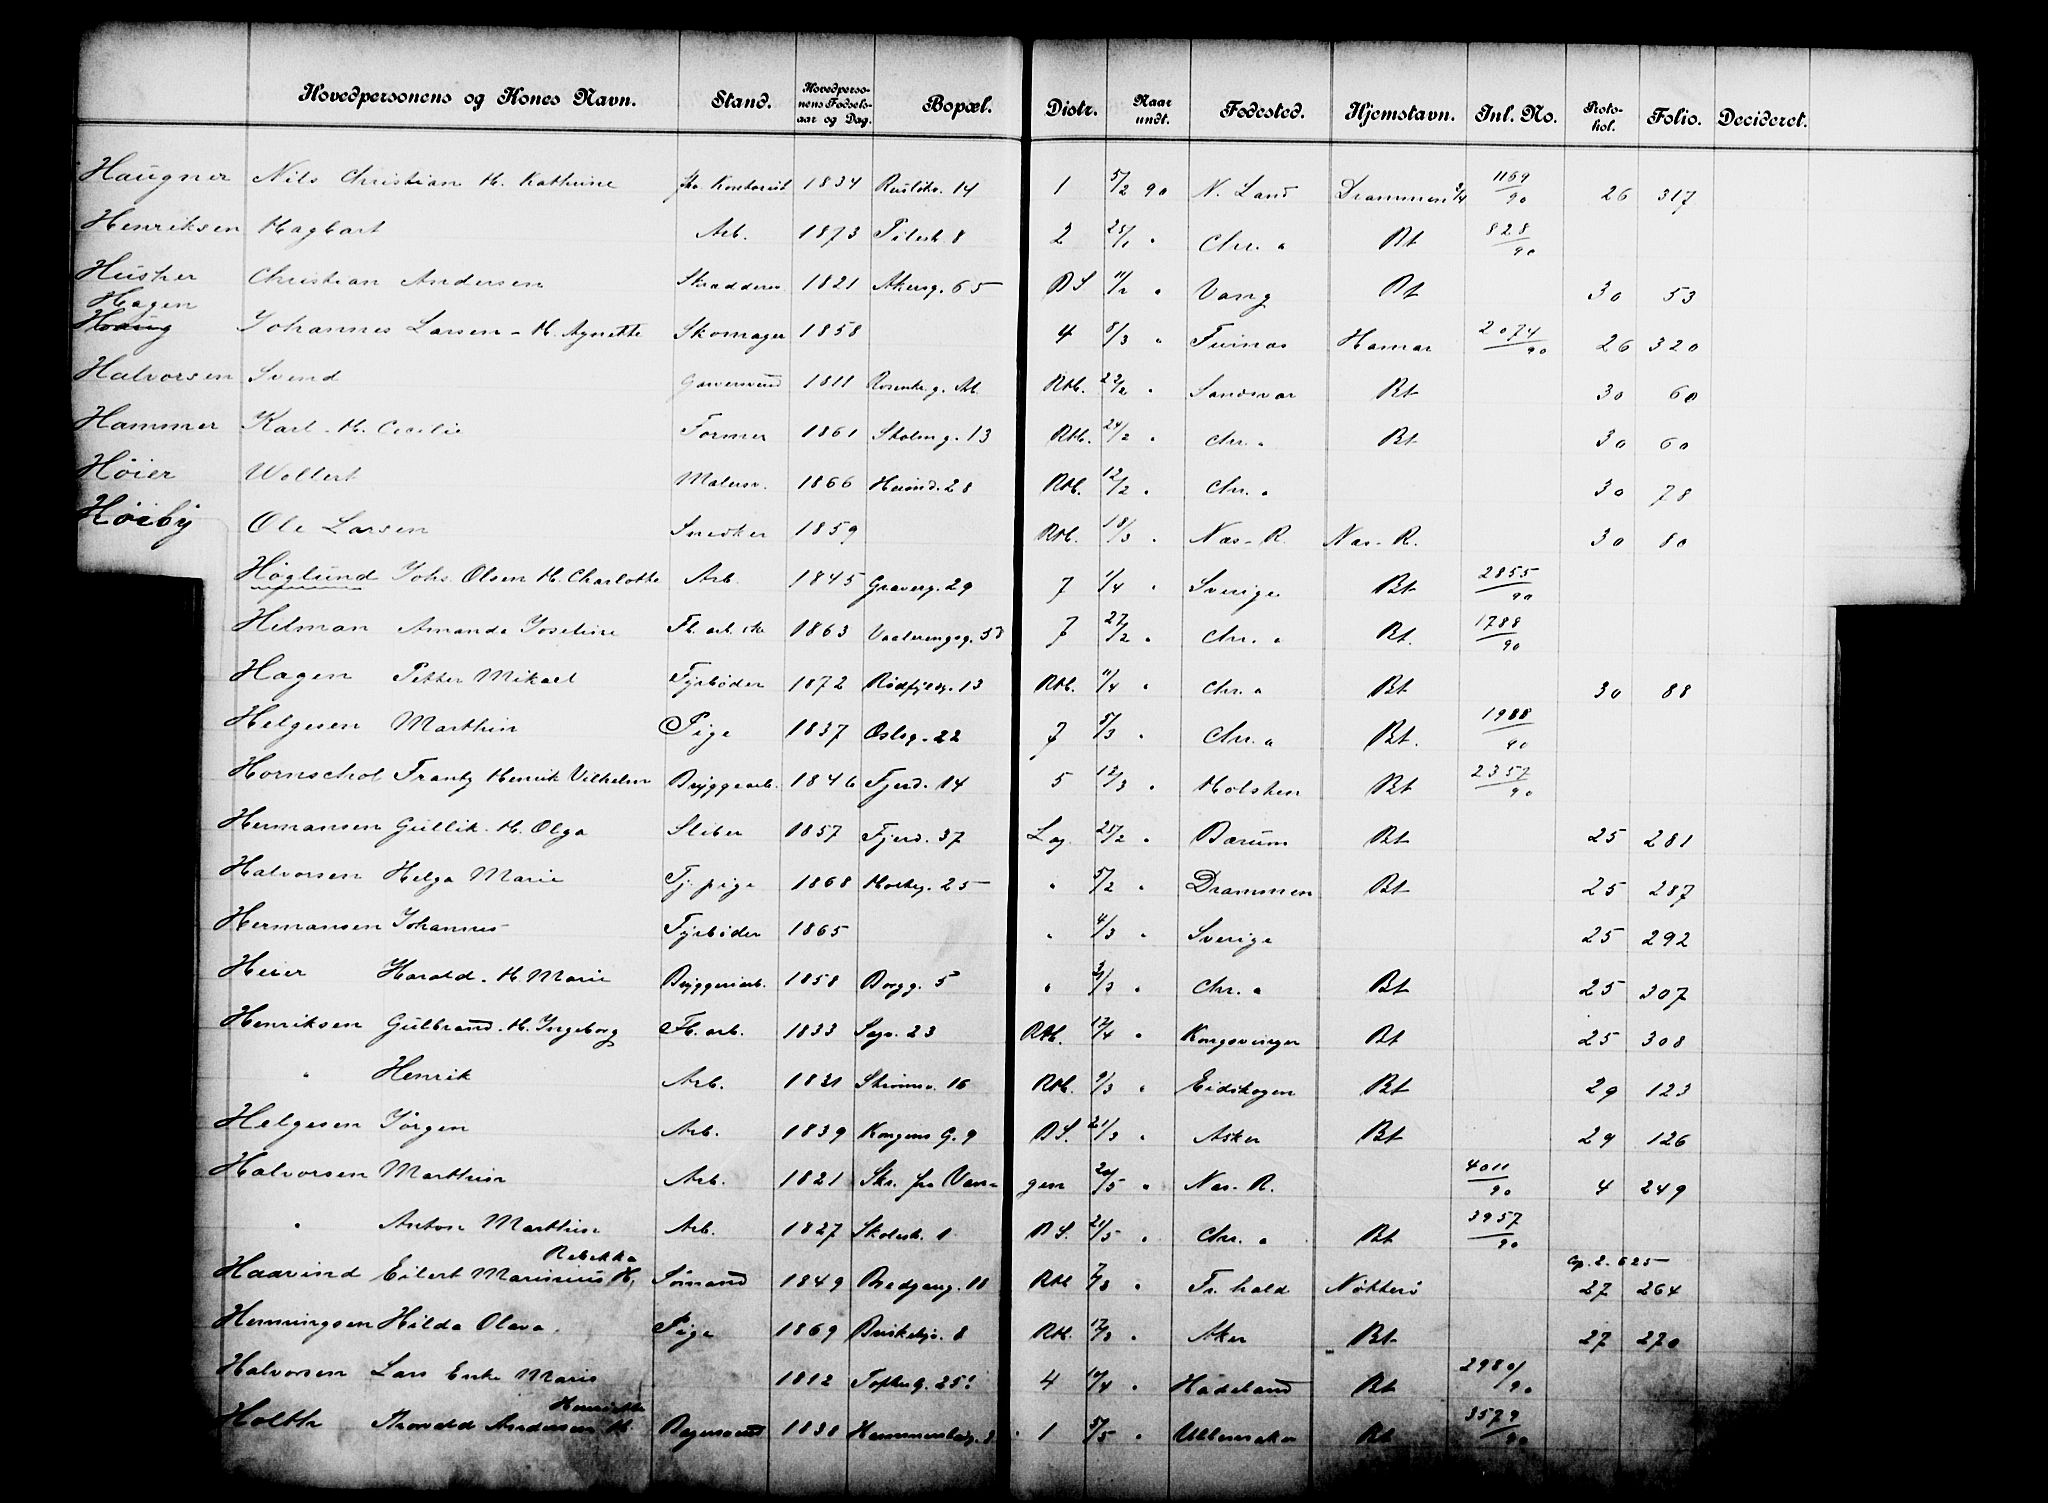 Hovedpersonens og Kones Navn. Stand. Hovedperso- nens Fødsels- aar og Dag. Bopæl. Distr. Naar undt. Fødested. Hjemstavn. Jnl. No. Proto- kol. Folio. Decideret.
Haugner Nils Christian H. Kathrine fhv. Kontorist 1834 14 1 5/2 90 N. Land Drammen 3/4 1169/90 26 317
Henriksen Hagbart Arb. 1873 Pilestr. 8 2 25/1 " Chr. a Bt 828/90
Husher Christian Andersen Skrædder 1821 Akersg. 65 D S 11/2 " Vang Bt 30 53
Hagen
Haug Johannes Larsen - H. Agnette Skomager 1858 4 8/3 " Furnæs Hamar 2074/90 26 320
Halvorsen Svend Garversvend 1811 Rosenkr. g. Arb. Rtb. 22/2 " Sandsvær Bt 30 60
Hammer Karl - H. Cecilie Former 1861 Skoleng. 13 Rtb. 24/2 " Chr. a Bt 30 60
Høier Wollert Malersv. 1866 28 Rtb. 12/2 " Chr. a 30 78
Høiby Ole Larsen Snedker 1859 Rtb. 18/3 " Næs - R. Næs - R. 30 80
Høglund Johs. Olsen H. Charlotte Arb. 1845 Graverg. 29 7 1/4 " Sverige Bt 2855/90
Hilman Amanda Joseline Fb. arb. ske 1863 Vaalerengsg. 53 7 27/2 " Chr. a Bt. 1788/90
Hagen Petter Mikael Fyrbøder 1872 Rødfyldg. 13 Rtb. 11/4 " Chr. a Bt 30 88
Helgesen Marthin Pige 1837 Oslog. 22 7 5/3 " Chr. a Bt. 1988/90
Hornschol Frantz Henrik Vilhelm Bryggearb. 1846 Fjerd. 14 5 12/3 " Holsten Bt 2357/90
Hermansen Gullik - H. Olga Sliber 1857 Fjerd. 37 Lag. 25/2 " Bærum Bt 25 281
Halvorsen Helga Marie Tj. pige 1868 25 " 5/2 " Drammen Bt 25 287
Hermansen Johannes Fyrbøder 1865 " 4/3 " Sverige 25 292
Heier Harald - H. Marie Bryggeriarb. 1858 Borgg. 5 " 3/3 " Chr. a Bt 25 307
Henriksen Gulbrand - H. Ingeborg Fb. arb. 1833 Sagv. 23 Rtb. 12/4 " Kongsvinger Bt 25 308
" Henrik Arb. 1831 16 Rtb. 9/3 " Eidskogen Bt 29 123
Helgesen Jørgen Arb. 1839 Kongens G. 9 D S. 21/3 " Asker Bt 29 126
Halvorsen Marthin Arb. 1821 Skr. fra Van- gen 20/5 " Næs - R. 4011/90 4 249
" Anton Marthin Arb. 1827 Skolestr. 1 D S. 21/5 " Chr. a Bt 3957/90
Rebekka cp. 2. 625
Haavind Eilert Marinius H. Sømand 1849 Bredgang. 18 Rtb 7/3 " Fr. hald Nøtterø 27 264
Henningsen Hilda Olava. Pige 1869 Birkebg. 8 Rtb. 17/3 " Aker Bt 27 270
Halvorsen Lars Enke Maris 1812 Tofteg. 25 4 14/4 " Hadeland Bt 2980/90
Henriette
Holth Thorvald Andersen H. 1838 Hammersborg. 1 5/5 " Ullensaker Bt 3579/90